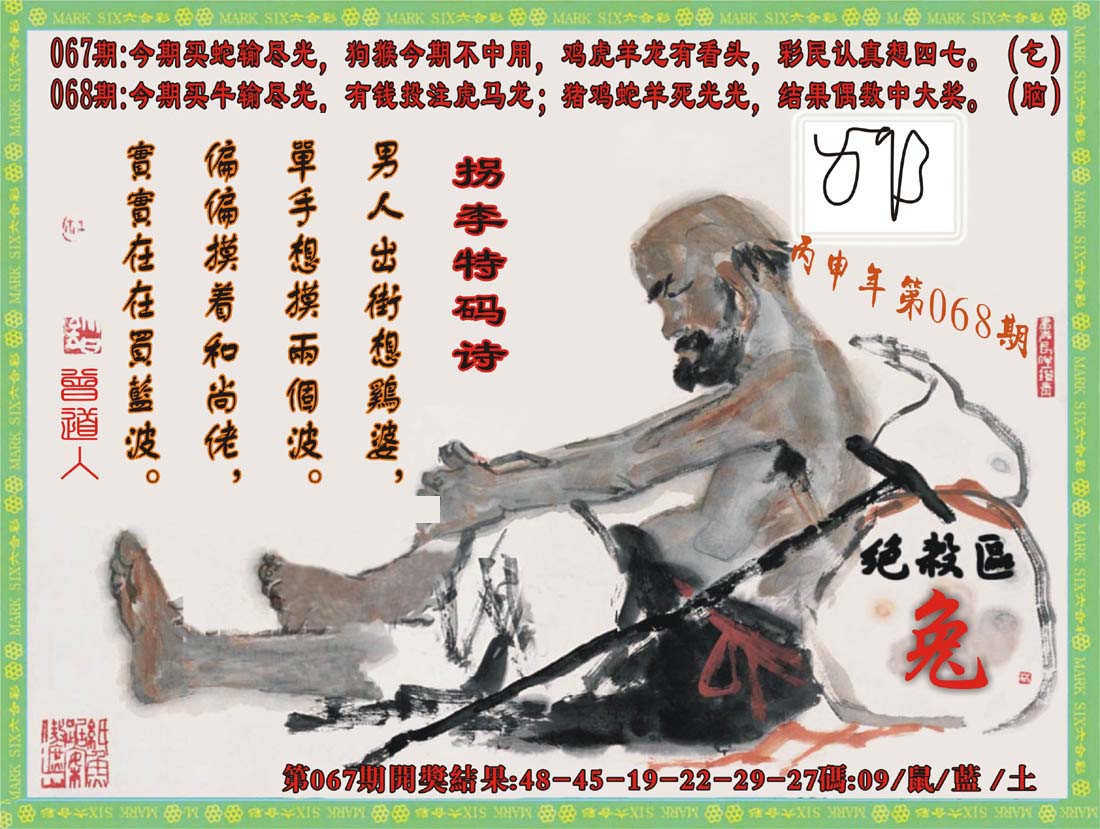 MARK SIX六合彩
067期:今期买蛇输尽光，狗猴今期不中用，鸡虎羊龙有看头，彩民认真想四七。（乞）
068期:今期买牛输尽光，有钱投注虎马龙；猪鸡蛇羊死光光，结果偶数中大奖。（脑）
拐李特码诗
男人出街想鷄婆，
單手想摸兩個波。
偏偏摸着和尚佬，
實實在在買藍波。
曾道人
丙申年第068期
绝殺區
兔
第067期開獎結果:48-45-19-22-29-27碼:09/鼠/藍/土